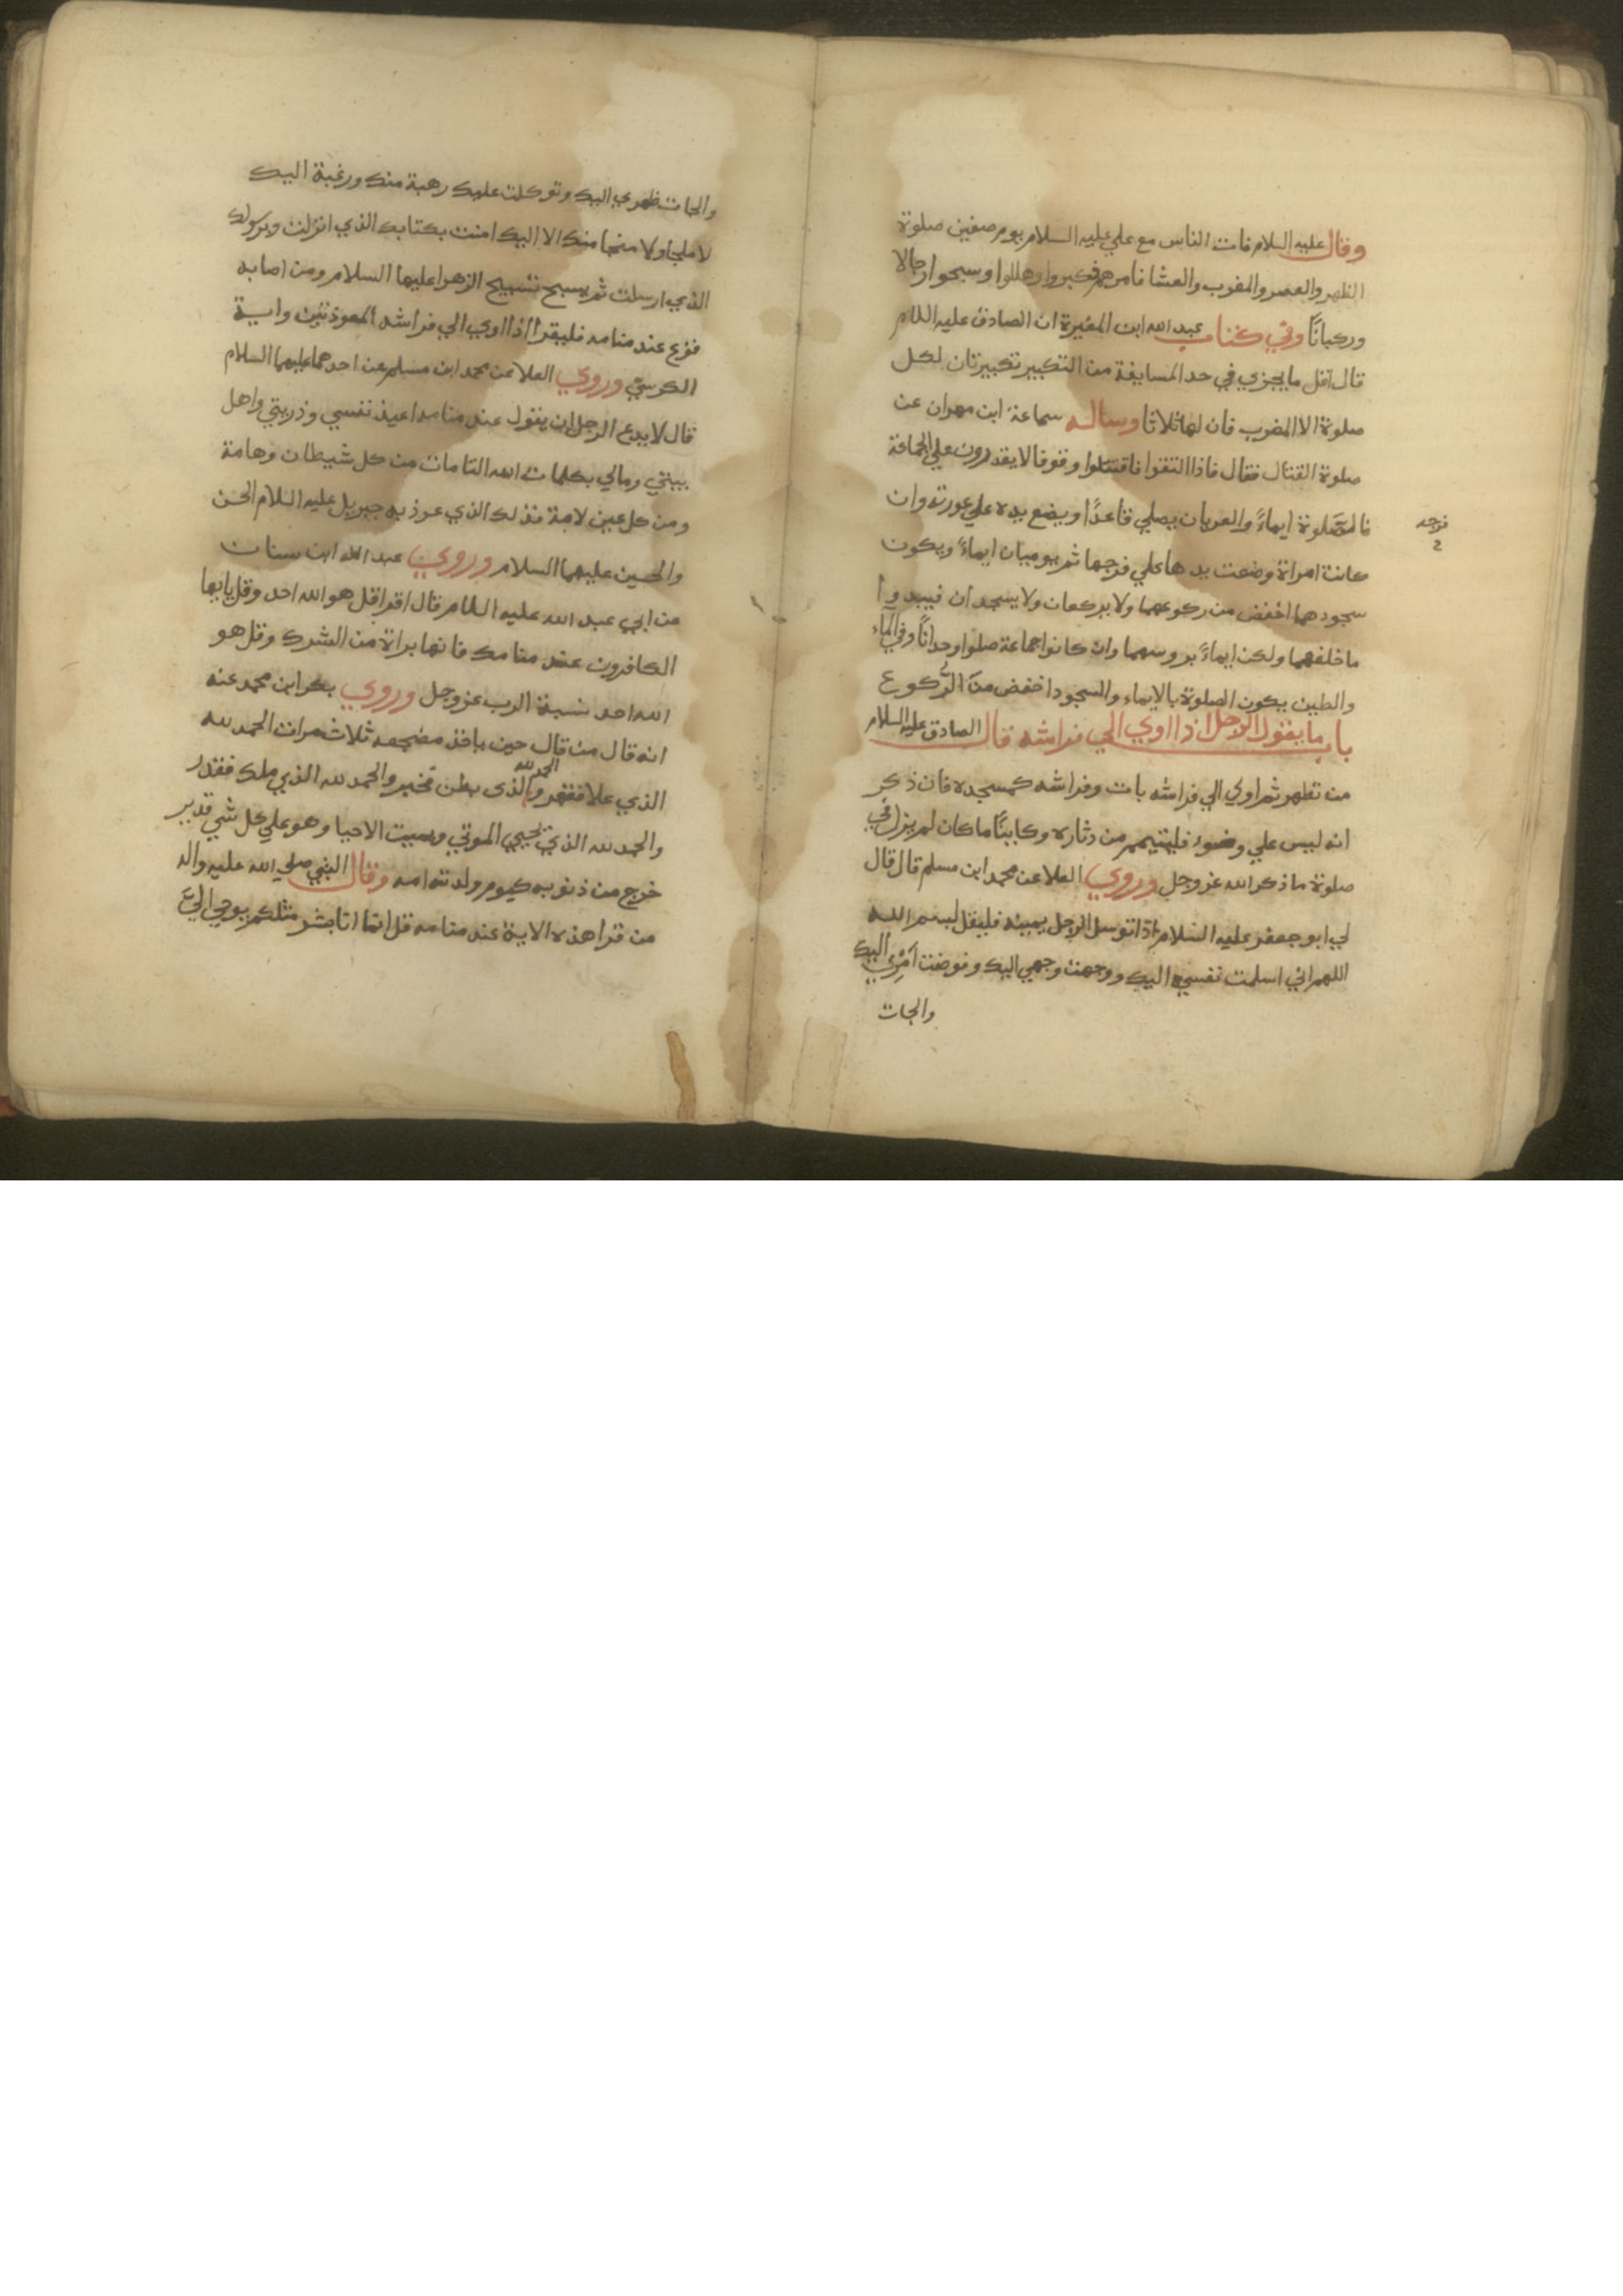 وقال عليه السلام فات الناس مع علي عليه السلام يوم صفين صلوة
الظهر والعصر والمغرب والعشا فامرهم فكبروا وهللوا وسبحوا رجالا
وركبانًا وفي كتاب عبد الله ابن المغيرة ان الصادق عليه اللام
قال اقل ما يجزي في حد المسايفة من التكبير تكبيرتان لكل
صلوة الا المغرب فان لها ثلاثا وساله سماعة ابن مهران عن
صلوة القتال فقال فاذا التقوا فاقتتلوا وقوفا لا يقدرون علي الجماعة
فالصلوة ايماءً والعريان يصلي قاعدًا ويضع يده علي عورته وان
فرجه
كانت امراة وضعت يدها علي فرجها ثم يوميان ايماءً ويكون
سجودهما اخفض من ركوعهما ولا يركعان ولا يسجدان فيبدوا
ما خلفهما ولكن ايماءً بروسهما وان كانوا جماعة صلوا وحدانًا وفي الماء
والطين يكون الصلوة بالايماء والسجود اخفض من الركوع
باب ما يقول الرجل اذا اوي الي فراشه قال الصادق عليه السلام
من تطهر ثم اوي الي فراشه بات وفراشه كمسجده فان ذكر
انه ليس علي وضوء فليتيمم من دثاره وكاينًا ما كان لم يزل في
صلوة ما ذكر الله عز وجل وروي العلا عن محمد ابن مسلم قال قال
لي ابو جعفر عليه السلام اذا توسل الرجل يمينه فليقل بسم الله
اللهم اني اسلمت نفسي اليك ووجهت وجهي اليك وفوضت امري اليك
والجات
والجات ظهري اليك وتوكلت عليك رهبة منك ورغبة اليك
لا ملجا ولا منجا منك الا اليك امنت بكتابك الذي انزلت وبرسولك
الذي ارسلت ثم يسبح تسبيح الزهرا عليها السلام ومن اصابه
فزع عند منامه فليقرا اذا اوي الي فراشه المعوذتين واية
الكرسي وروي العلا عن محمد ابن مسلم عن احدهما عليهما السلام
قال لا يدع الرجل ان يقول عند منامه اعيذ نفسي وذريتي واهل
بيتي ومالي بكلمات الله التامات من كل شيطان وهامة
ومن كل عين لامة فذلك الذي عوذ به جبريل عليه السلام الحسن
والحسين عليهما السلام وروي عبد الله ابن سنان
عن ابي عبد الله عليه اللام قال اقرا قل هو الله احد وقل يايها
الكافرون عند منامك فانها براة من الشرك وقل هو
الله احد نسبة الرب عز وجل وروي بكر ابن محمد عنه
انه قال من قال حين ياخذ مضجعه ثلاث مرات الحمد لله
الذي علا فقهر والحمد لله الذي بطن فخبر والحمد لله الذي ملك فقدر
والحمد لله الذي يحيي الموتي ويميت الاحيا وهو علي كل شي قدير
خرج من ذنوبه كيوم ولدته امه وقال النبي صلي الله عليه واله
من قرا هذه الاية عند منامه قل انما انا بشر مثلكم يوحي اليَّ